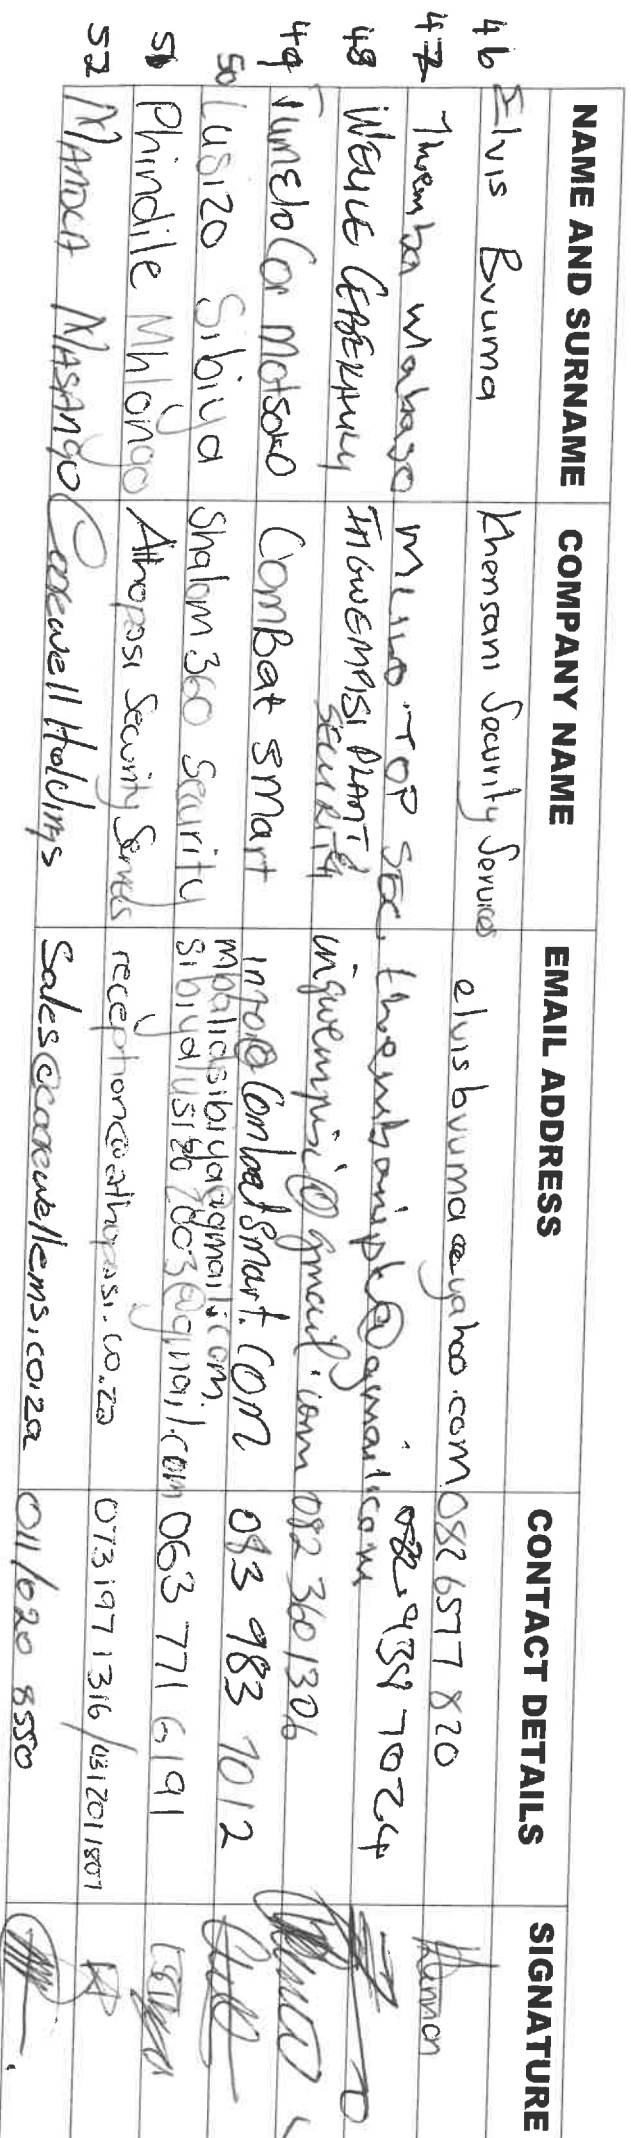 NAME AND SURNAME COMPANY NAME EMAIL ADDRESS CONTACT DETAILS SIGNATURE
46 Elvis Bvuma Khensani Security Services elvisbvuma@yahoo.com 0826577820
47 Themba Mabaso TOP SEC. thembanipk@gmail.com 082 939 7024
48 WELILE INGWEMPISI PLANT & SECURITY ingwempisi@gmail.com 082 3601306
49 Tumelo Cor Motsoko ComBat smart info@CombatSmart.com 083 983 7012
50 Lusizo Sibiya Shalom 360 Security mbalicisibiya@gmail.com,
sibiyalusizo2003@gmail.com 063 771 6191
51 Phindile Mhlongo Athoposi Security Services reception@athoposi.co.za 073 197 1316 / 0312011807
52 NANDCA MASANGO Corewell Holdings Sales@corewellems.co.za 011/020 8550